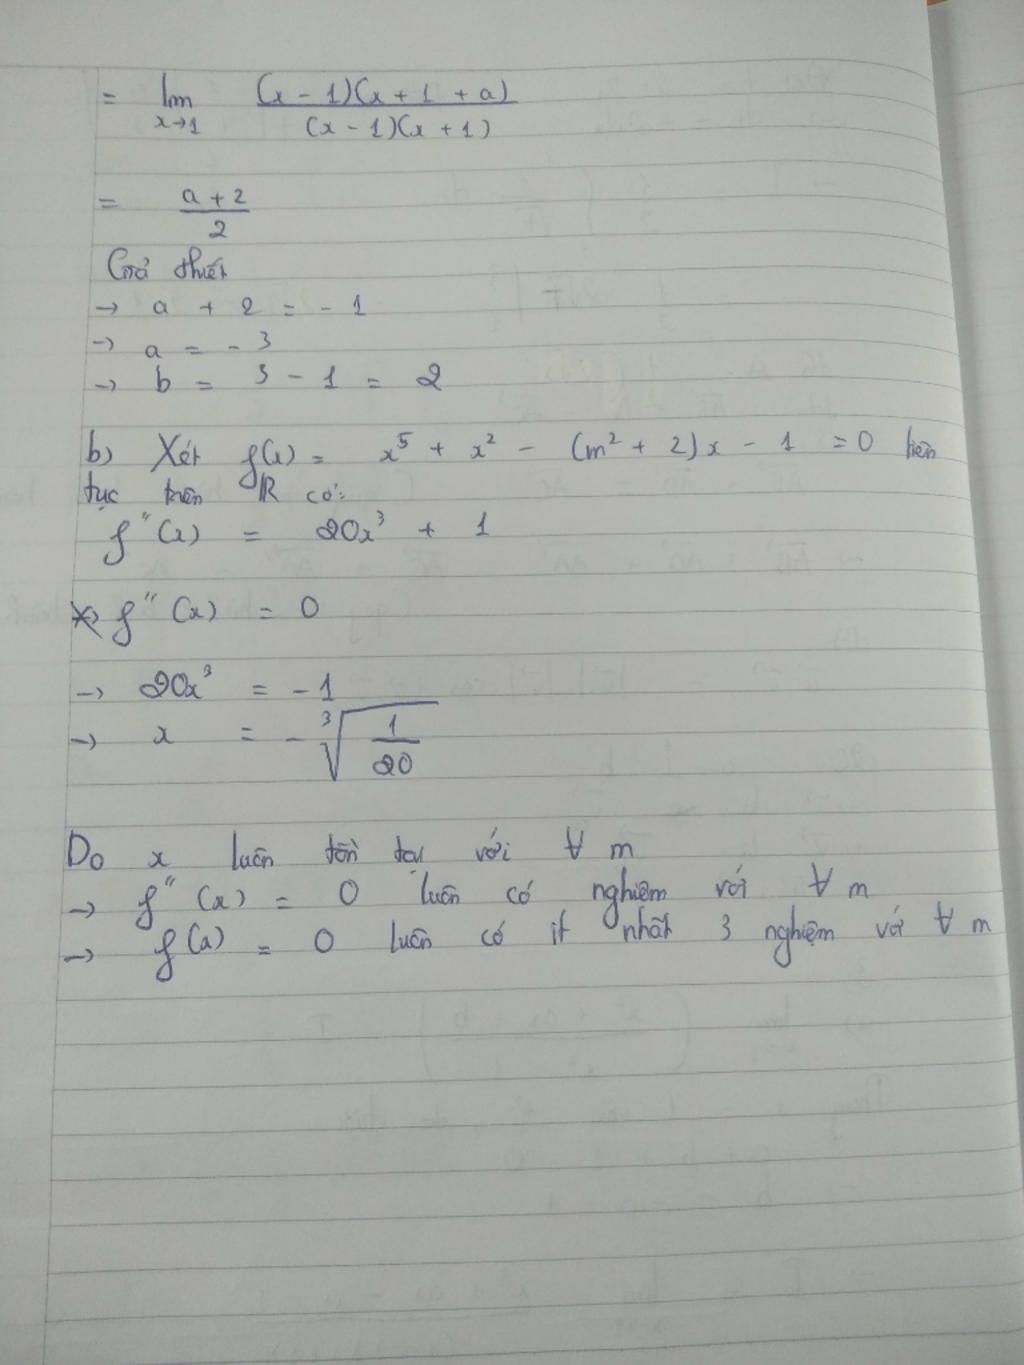 = lim x→1 (x - 1)(x + 1 + a) / (x - 1)(x + 1)
= a + 2 / 2
Giả thiết
→ a + 2 = - 1
→ a = - 3
→ b = 3 - 1 = 2
b) Xét f(x) = x⁵ + x² - (m² + 2)x - 1 = 0 liên
tục trên ℝ có:
f''(x) = 20x³ + 1
f''(x) = 0
→ 20x³ = - 1
→ x = - ∛(1/20)
Do x luôn tồn tại với ∀ m
→ f''(x) = 0 luôn có nghiệm với ∀ m
→ f(x) = 0 luôn có ít nhất 3 nghiệm với ∀ m